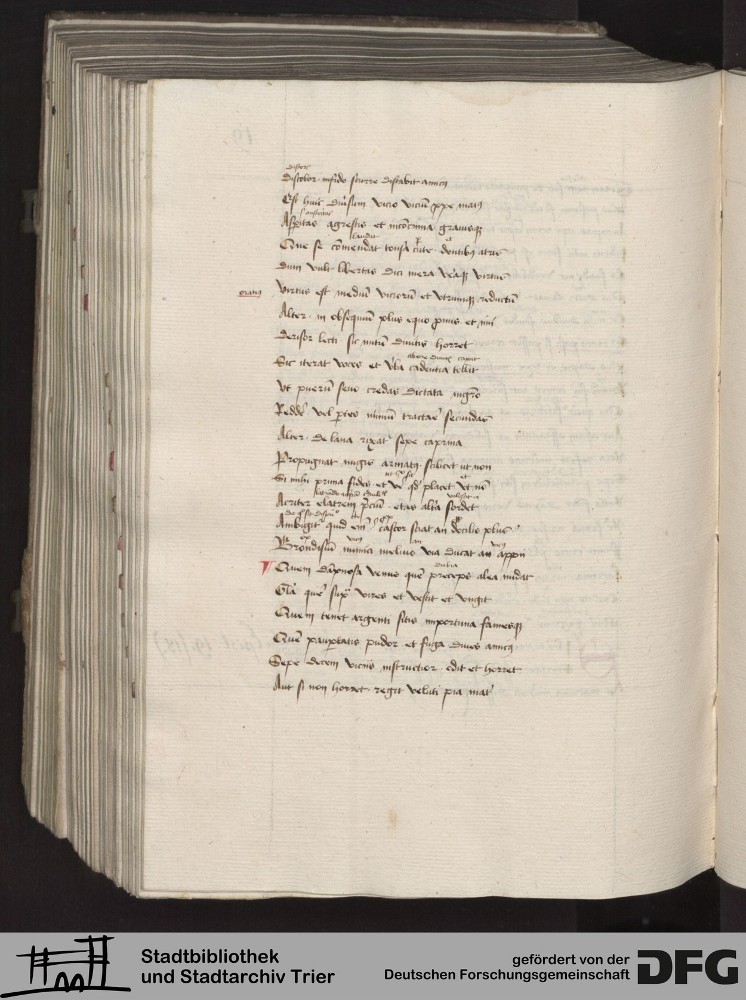 discolor infido scurre distabit amicus
Est huic diversum vicio vicium prope maius
Asperitas agrestis et inconcinna gravisque
Que se commendat tonsa cute dentibus atris
dum vult libertas dici mera veraque virtus
oratius
Virtus est medium viciorum et utrimque reductum
Alter in obsequium plus equo pronus et imi
derisor lecti sic nutum divitis horret
Sic iterat voces et verba cadentia tollit
Ut puerum sevo credas dictata magistro
Reddere vel partes mimum tractare secundas
Alter de lana rixatur sepe caprina
Propugnat nugis armatus scilicet ut non
Si mihi prima fides et vere quod placet ut non
Acriter elatrem precium etas altera sordet
Ambigitur quid enim castor sciat an docilis plus
Brondisium minuci melius via ducat an appii
Quem dampnosa venus quem preceps alea nudat
Gloria quem supra vires et vestit et ungit
Quem tenet argenti sitis importuna famesque
Quem paupertatis pudor et fuga dives amicus
Sepe decem viciis instructior odit et horret
Aut si non horret regit veluti pia mater
Stadtbibliothek
und Stadtarchiv Trier
gefördert von der
Deutschen Forschungsgemeinschaft
DFG